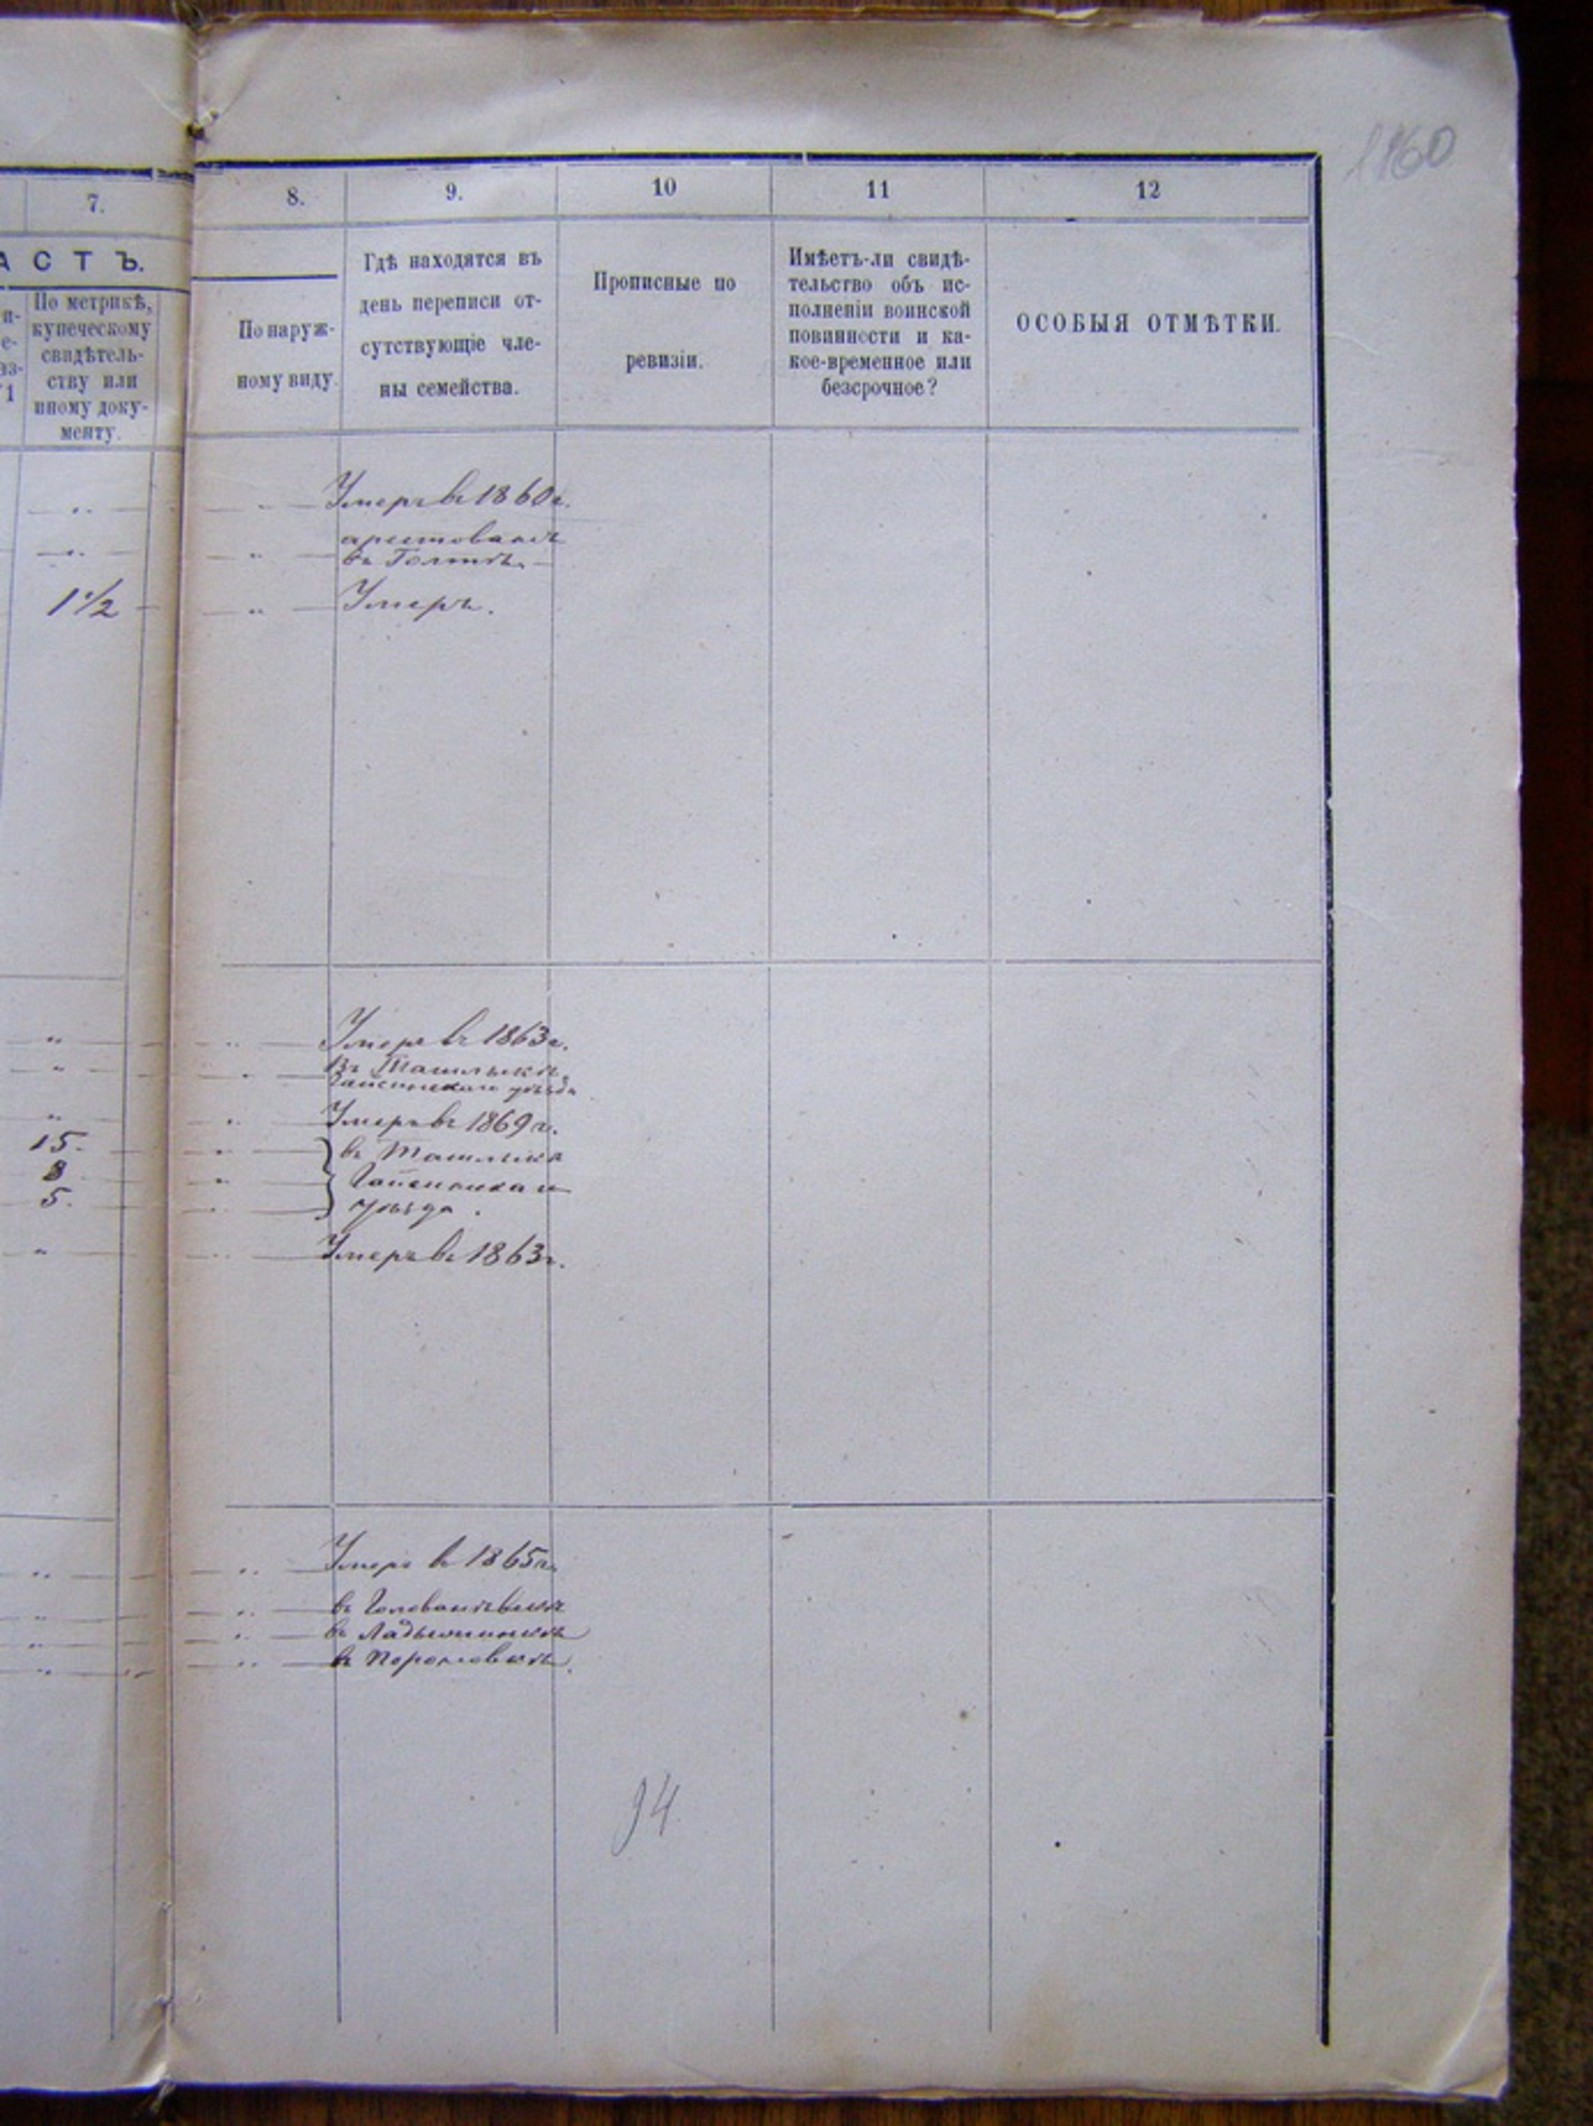 1160
7.
8.
9.
10
11
12
АСТЪ.
По метрикѣ,
купеческому
свидѣтель-
ству или
иному доку-
менту.
По наруж-
ному виду.
Гдѣ находятся въ
день переписи от-
сутствующіе чле-
ны семейства.
Прописные по
ревизіи.
Имѣетъ-ли свидѣ-
тельство объ ис-
полненіи воинской
повинности и ка-
кое-временное или
безсрочное?
ОСОБЫЯ ОТМѢТКИ.
Умеръ въ 1860 г.
арестованъ
въ Голтѣ.
1 1/2
Умеръ.
Умеръ въ 1863 г.
Въ Ташлыкѣ
Гайсинскаго уѣзда
Умеръ въ 1869 г.
15. въ Ташлыкѣ
8 Гайсинскаго
5. уѣзда.
Умеръ въ 1863 г.
Умеръ въ 1865 г.
въ Голованѣвскѣ
въ Ладыжинкѣ
въ
94